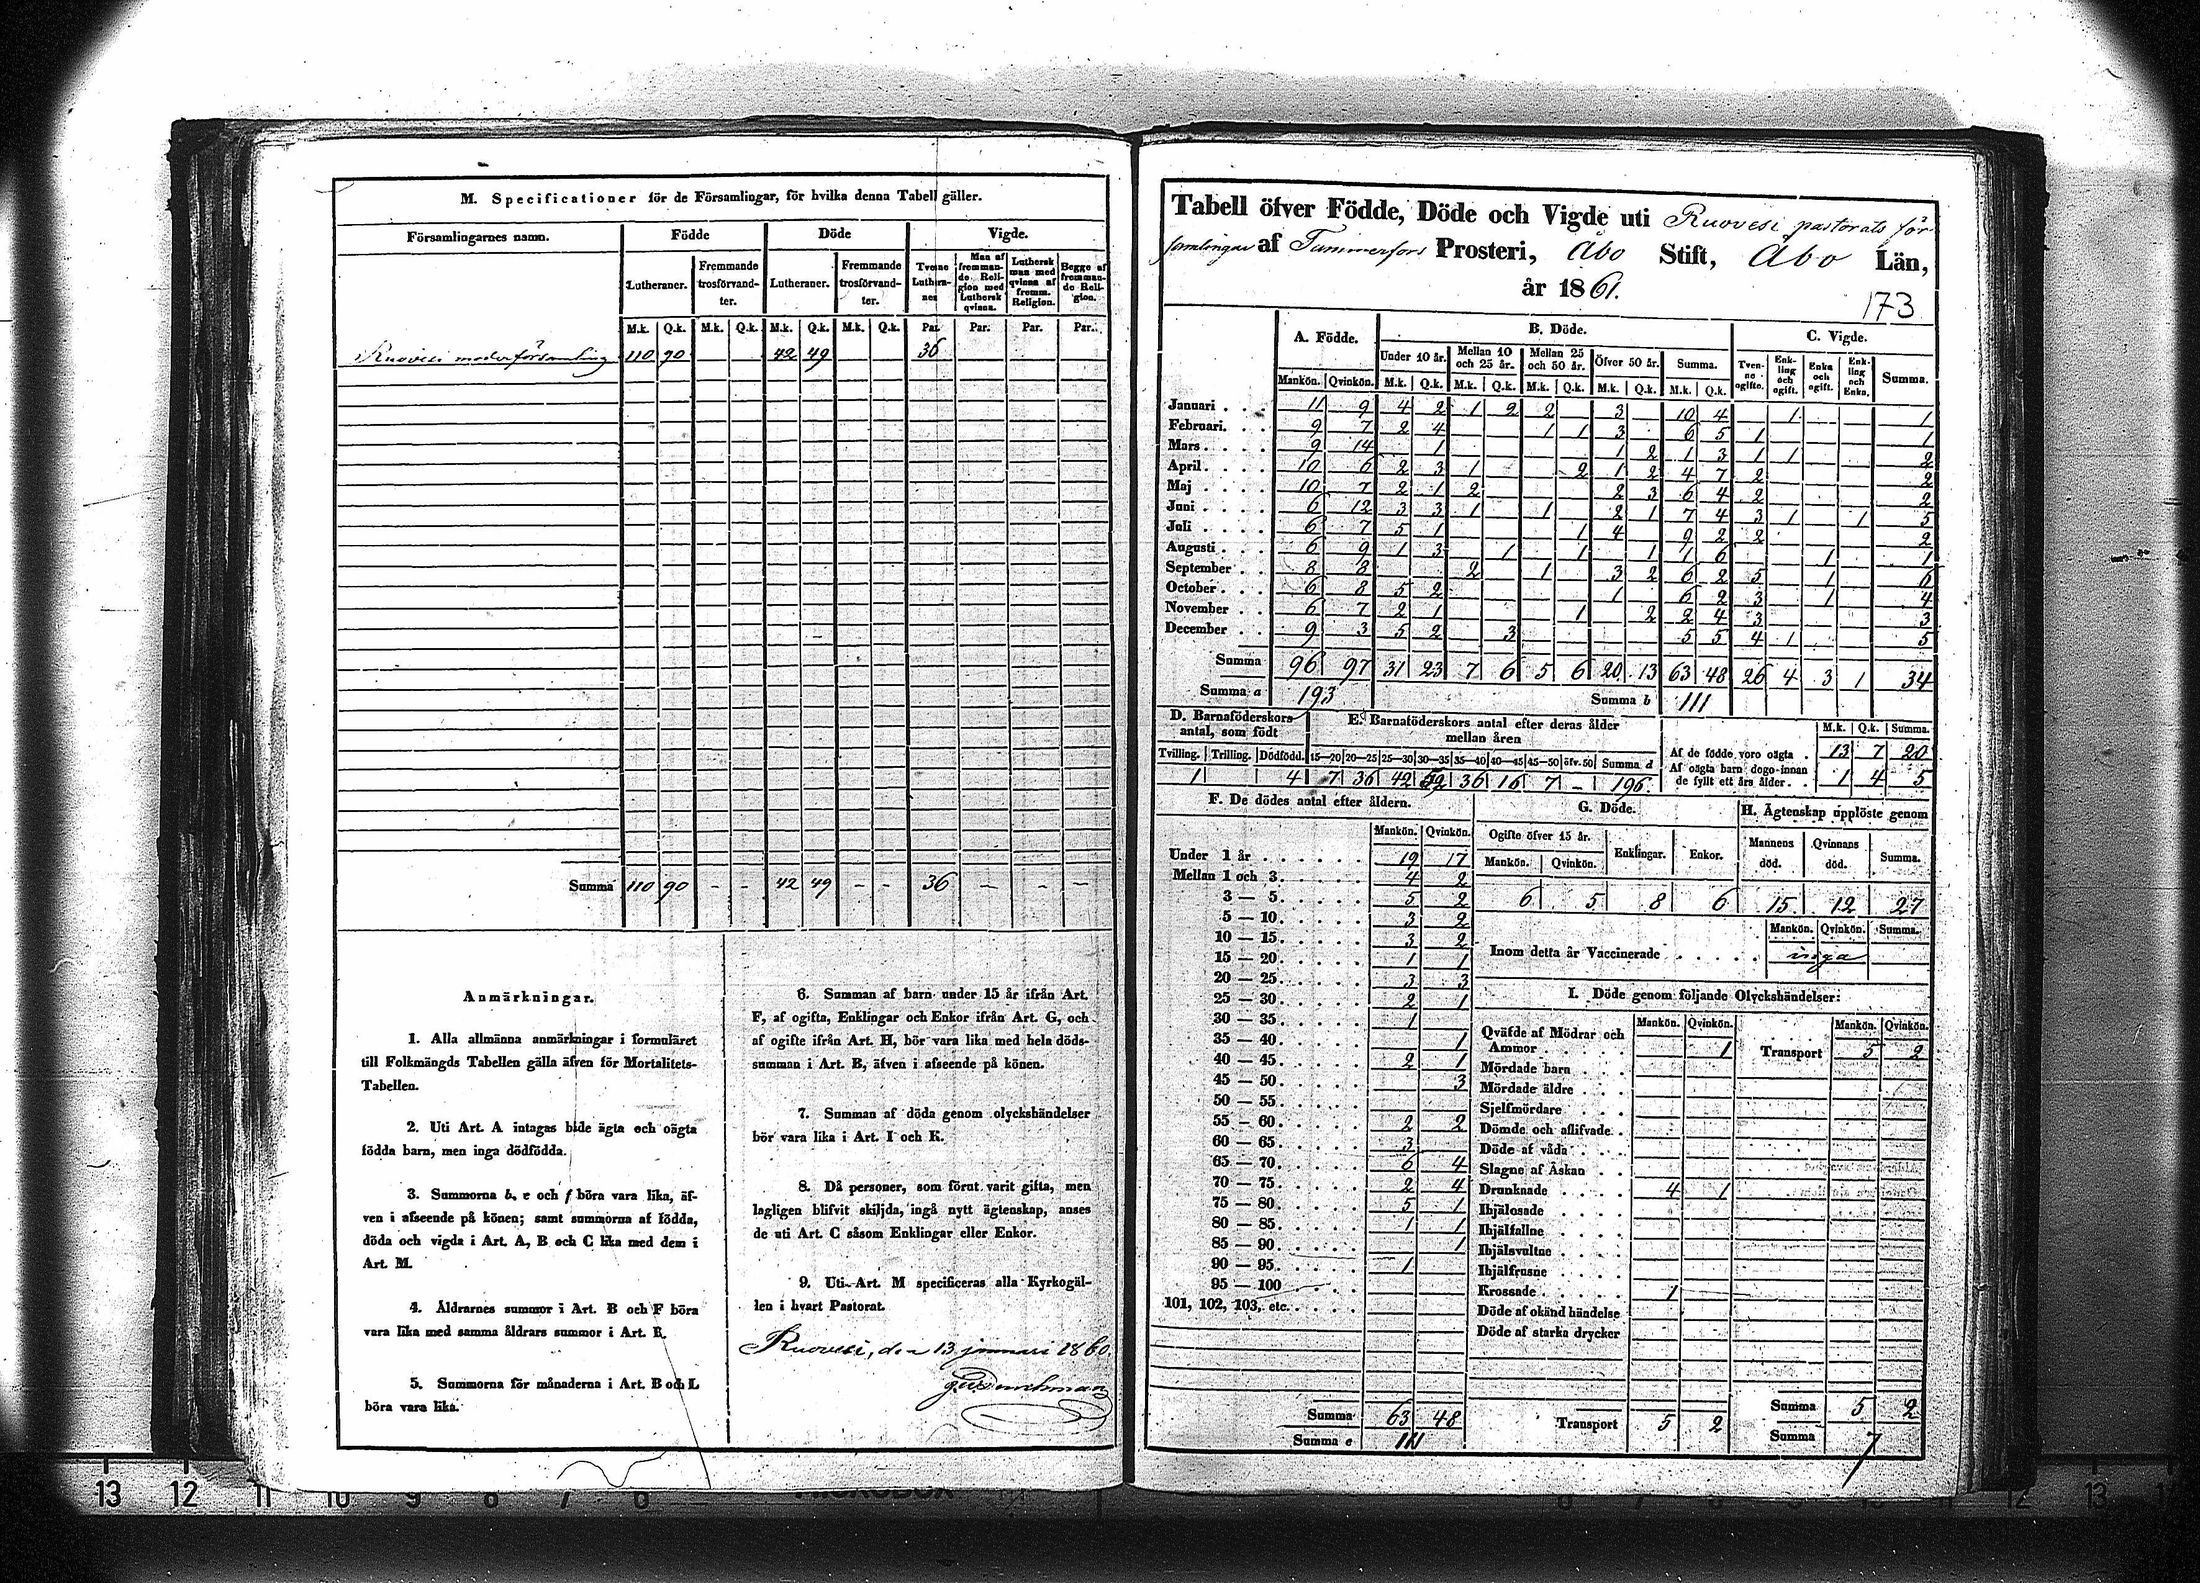 M. Specificationer för de Församlingar, för hvilka denna Tabell gäller.
Församlingarnes namn. Födde Döde Vigde.
Lutheraner. Fremmande trosförvandter. Lutheraner. Fremmande trosförvandter. Tvenne Lutheranes Man af fremmande Religion med Luthersk qvinna. Luthersk man med qvinna af fremm. Religion. Begge af fremmande Religion.
M.k. Q.k. M.k. Q.k. M.k. Q.k. M.k. Q.k. Par. Par. Par. Par.
Ruovesi moderförsamling 110 90 42 49 36
Summa 110 90 - - 42 49 - - 36 - - -
Anmärkningar.
1. Alla allmänna anmärkningar i formuläret
till Folkmängds Tabellen gälla äfven för Mortalitets-
Tabellen.
2. Uti Art. A intagas både ägta och oägta
födda barn, men inga dödfödda.
3. Summorna b, e och f böra vara lika, äf-
ven i afseende på könen; samt summorna af födda,
döda och vigda i Art. A, B och C lika med dem i
Art. M.
4. Åldrarnes summor i Art. B och F böra
vara lika med samma åldrars summor i Art. K.
5. Summorna för månaderna i Art. B och L
böra vara lika.
6. Summan af barn under 15 år ifrån Art.
F, af ogifta, Enklingar och Enkor ifrån Art. G, och
af ogifte ifrån Art. H, bör vara lika med hela döds-
summan i Art. B, äfven i afseende på könen.
7. Summan af döda genom olyckshändelser
bör vara lika i Art. I och K.
8. Då personer, som förut varit gifta, men
lagligen blifvit skiljda, ingå nytt ägtenskap, anses
de uti Art. C såsom Enklingar eller Enkor.
9. Uti Art. M specificeras alla Kyrkogäl-
len i hvart Pastorat.
Ruovesi, den 13 januari 1860.
Tabell öfver Födde, Döde och Vigde uti Ruovesi pastorats för-
samlingar af Tammerfors Prosteri, Åbo Stift, Abo Län,
år 1861.
173
A. Födde. B. Döde. C. Vigde.
Under 10 år. Mellan 10 och 25 år. Mellan 25 och 50 år. Öfver 50 år. Summa. Tvenne ogifte. Enkling och ogift. Enka och ogift. Enkling och Enka. Summa.
Mankön. Qvinkön. M.k. Q.k. M.k. Q.k. M.k. Q.k. M.k. Q.k. M.k. Q.k.
Januari 11 9 4 2 1 2 2 3 10 4 1 1
Februari 9 7 2 4 1 1 3 6 5 1 1
Mars 9 14 1 1 2 1 3 1 1 2
April 10 6 2 3 1 2 1 2 4 7 2 2
Maj 10 7 2 1 2 2 3 6 4 2 2
Juni 6 12 3 3 1 1 2 1 7 4 3 1 1 5
Juli 6 7 5 1 1 4 9 2 2 2
Augusti 6 9 1 3 1 1 1 1 6 1 1
September 8 8 2 1 3 2 6 2 5 1 6
October 6 8 5 2 1 6 2 3 1 4
November 6 7 2 1 1 2 2 4 3 3
December 9 3 5 2 3 5 5 4 1 5
Summa 96 97 31 23 7 6 5 6 20 13 63 48 26 4 3 1 34
Summa a 193 Summa b 111
D. Barnaföderskors antal, som födt
Tvilling. Trilling. Dödfödd.
1 4
E. Barnaföderskors antal efter deras ålder mellan åren
15—20 20—25 25—30 30—35 35—40 40—45 45—50 öfv. 50 Summa d
7 36 42 52 36 16 7 - 196.
M.k. Q.k. Summa.
Af de födde voro oägta 13 7 20
Af oägta barn dogo innan de fyllt ett års ålder. 1 4 5
F. De dödes antal efter åldern.
Mankön. Qvinkön.
Under 1 år 19 17
Mellan 1 och 3 4 2
3 — 5 5 2
5 — 10 3 2
10 — 15 3 2
15 — 20 1 1
20 — 25 3 3
25 — 30 2 1
30 — 35 1
35 — 40 1
40 — 45 2 1
45 — 50 3
50 — 55
55 — 60 2 2
60 — 65 3
65 — 70 6 4
70 — 75 2 4
75 — 80 5 1
80 — 85 1 1
85 — 90 1
90 — 95 1
95 — 100
101, 102, 103, etc.
Summa 63 48
Summa e 111
G. Döde.
Ogifte öfver 15 år. Enklingar. Enkor.
Mankön. Qvinkön.
6 5 8 6
H. Ägtenskap upplöste genom
Mannens död. Qvinnans död. Summa.
15 12 27
Mankön. Qvinkön. Summa.
Inom detta år Vaccinerade inga
I. Döde genom följande Olyckshändelser:
Mankön. Qvinkön. Mankön. Qvinkön.
Qväfde af Mödrar och Ammor 1 Transport 5 2
Mördade barn
Mördade äldre
Sjelfmördare
Dömde och aflifvade
Döde af våda
Slagne af Åskan
Drunknade 4 1
Ihjälosade
Ihjälfallne
Ihjälsvultne
Ihjälfrusne
Krossade 1
Döde af okänd händelse
Döde af starka drycker
Transport 5 2
Summa 5 2
Summa 7
13 12 11 10 9 8 7 6
12 13